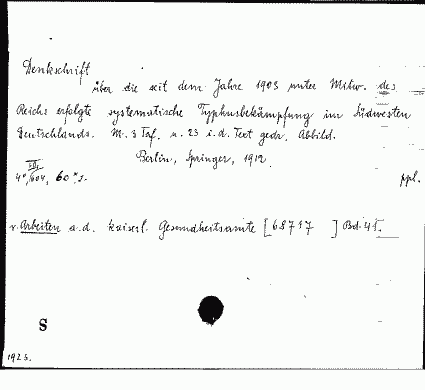 Denkschrift
über die seit dem Jahre 1903 unter Mitw. des
Reichs erfolgte systematische Typhusbekämpfung im Südwesten
Deutschlands. M. 3 Taf. u. 23 i. d. Text gedr. Abbild.
Berlin, Springer, 1912.
4°, 604, 60*, S. ppl.
v. Arbeiten a. d. kaiserl. Gesundheitsamte [68717 ] Bd. 41.
S
1923.